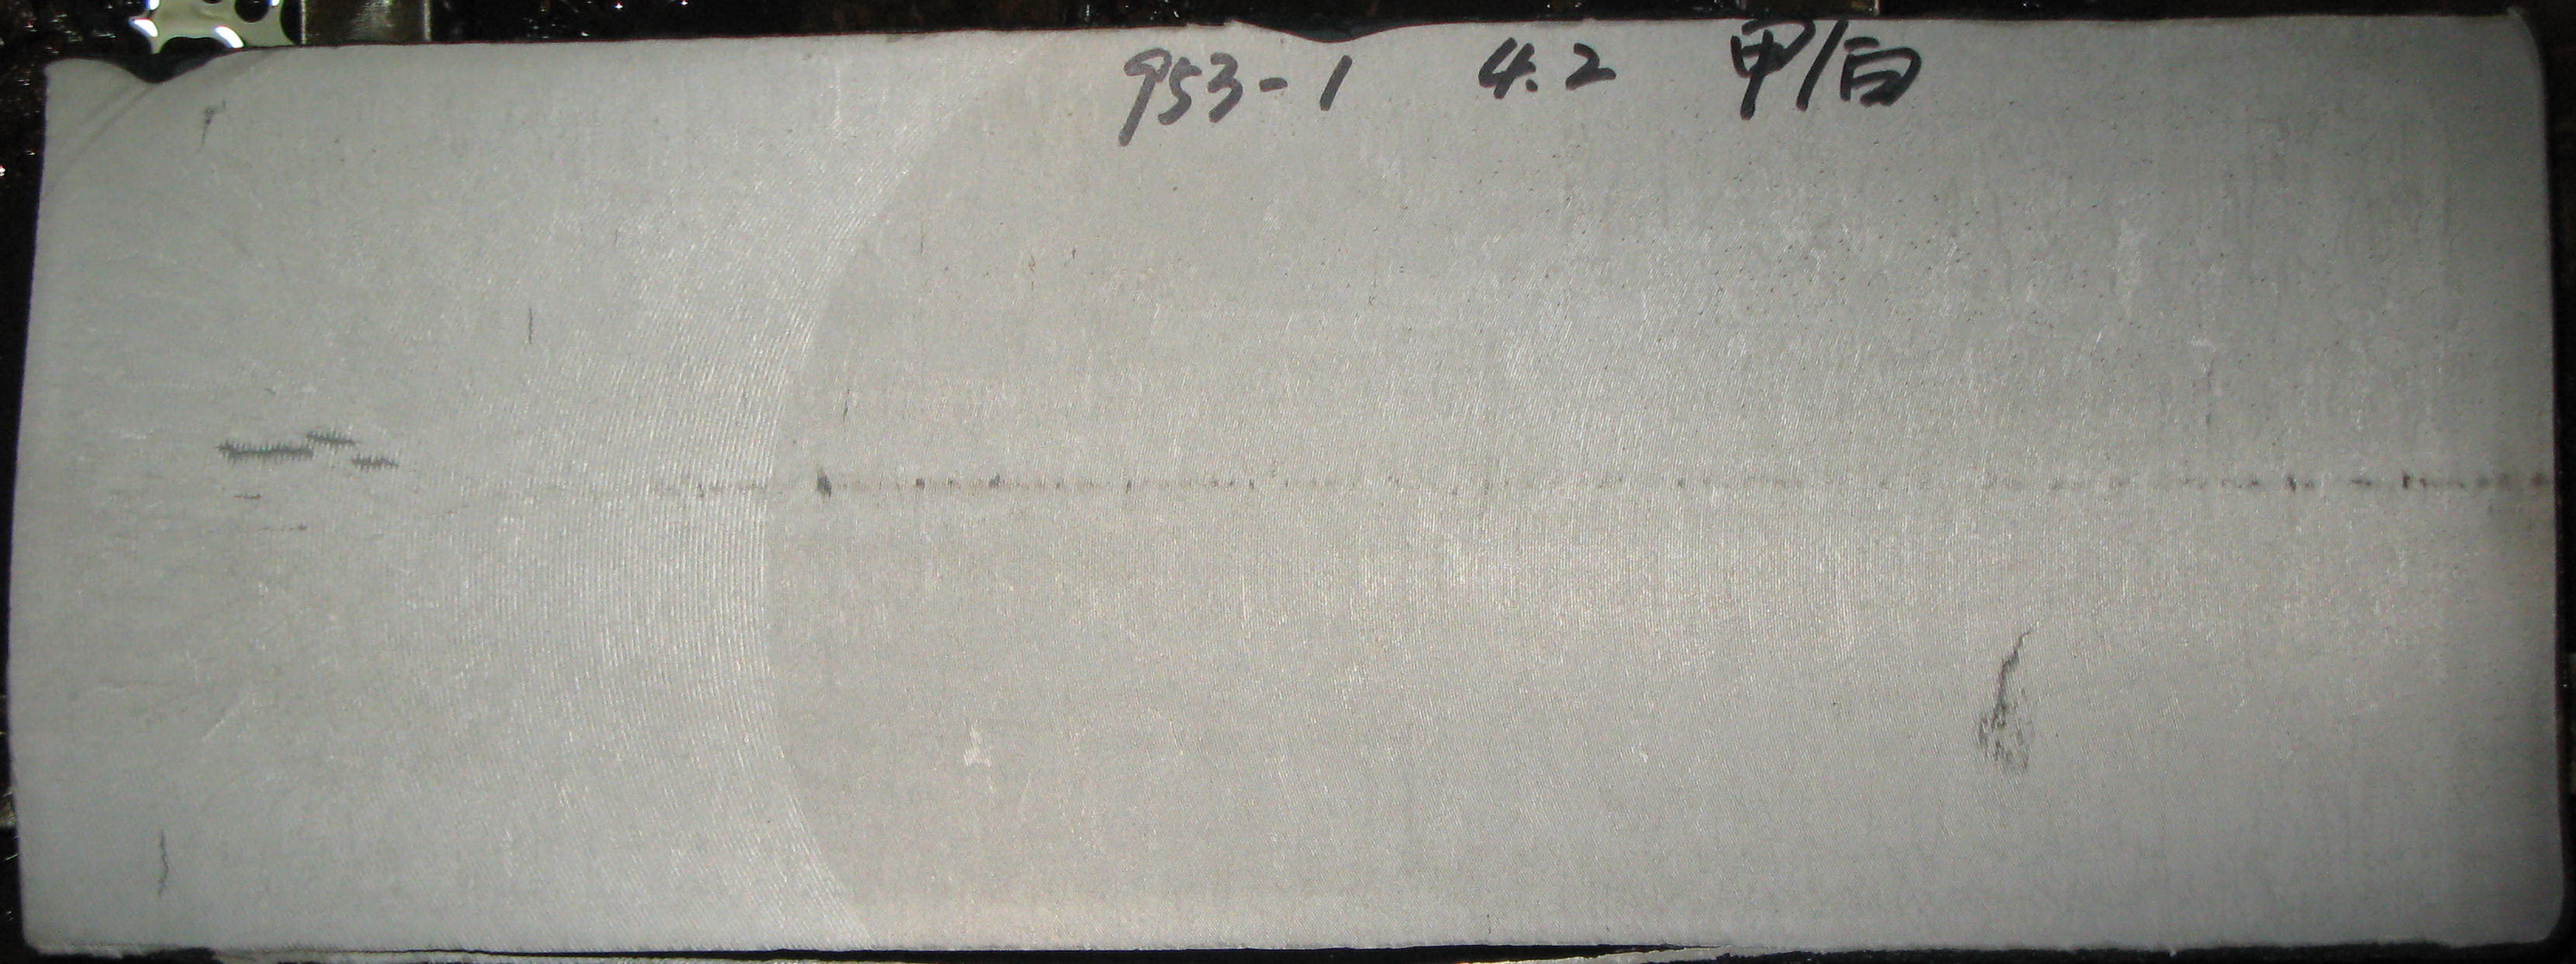 953-1 4.2 甲/白